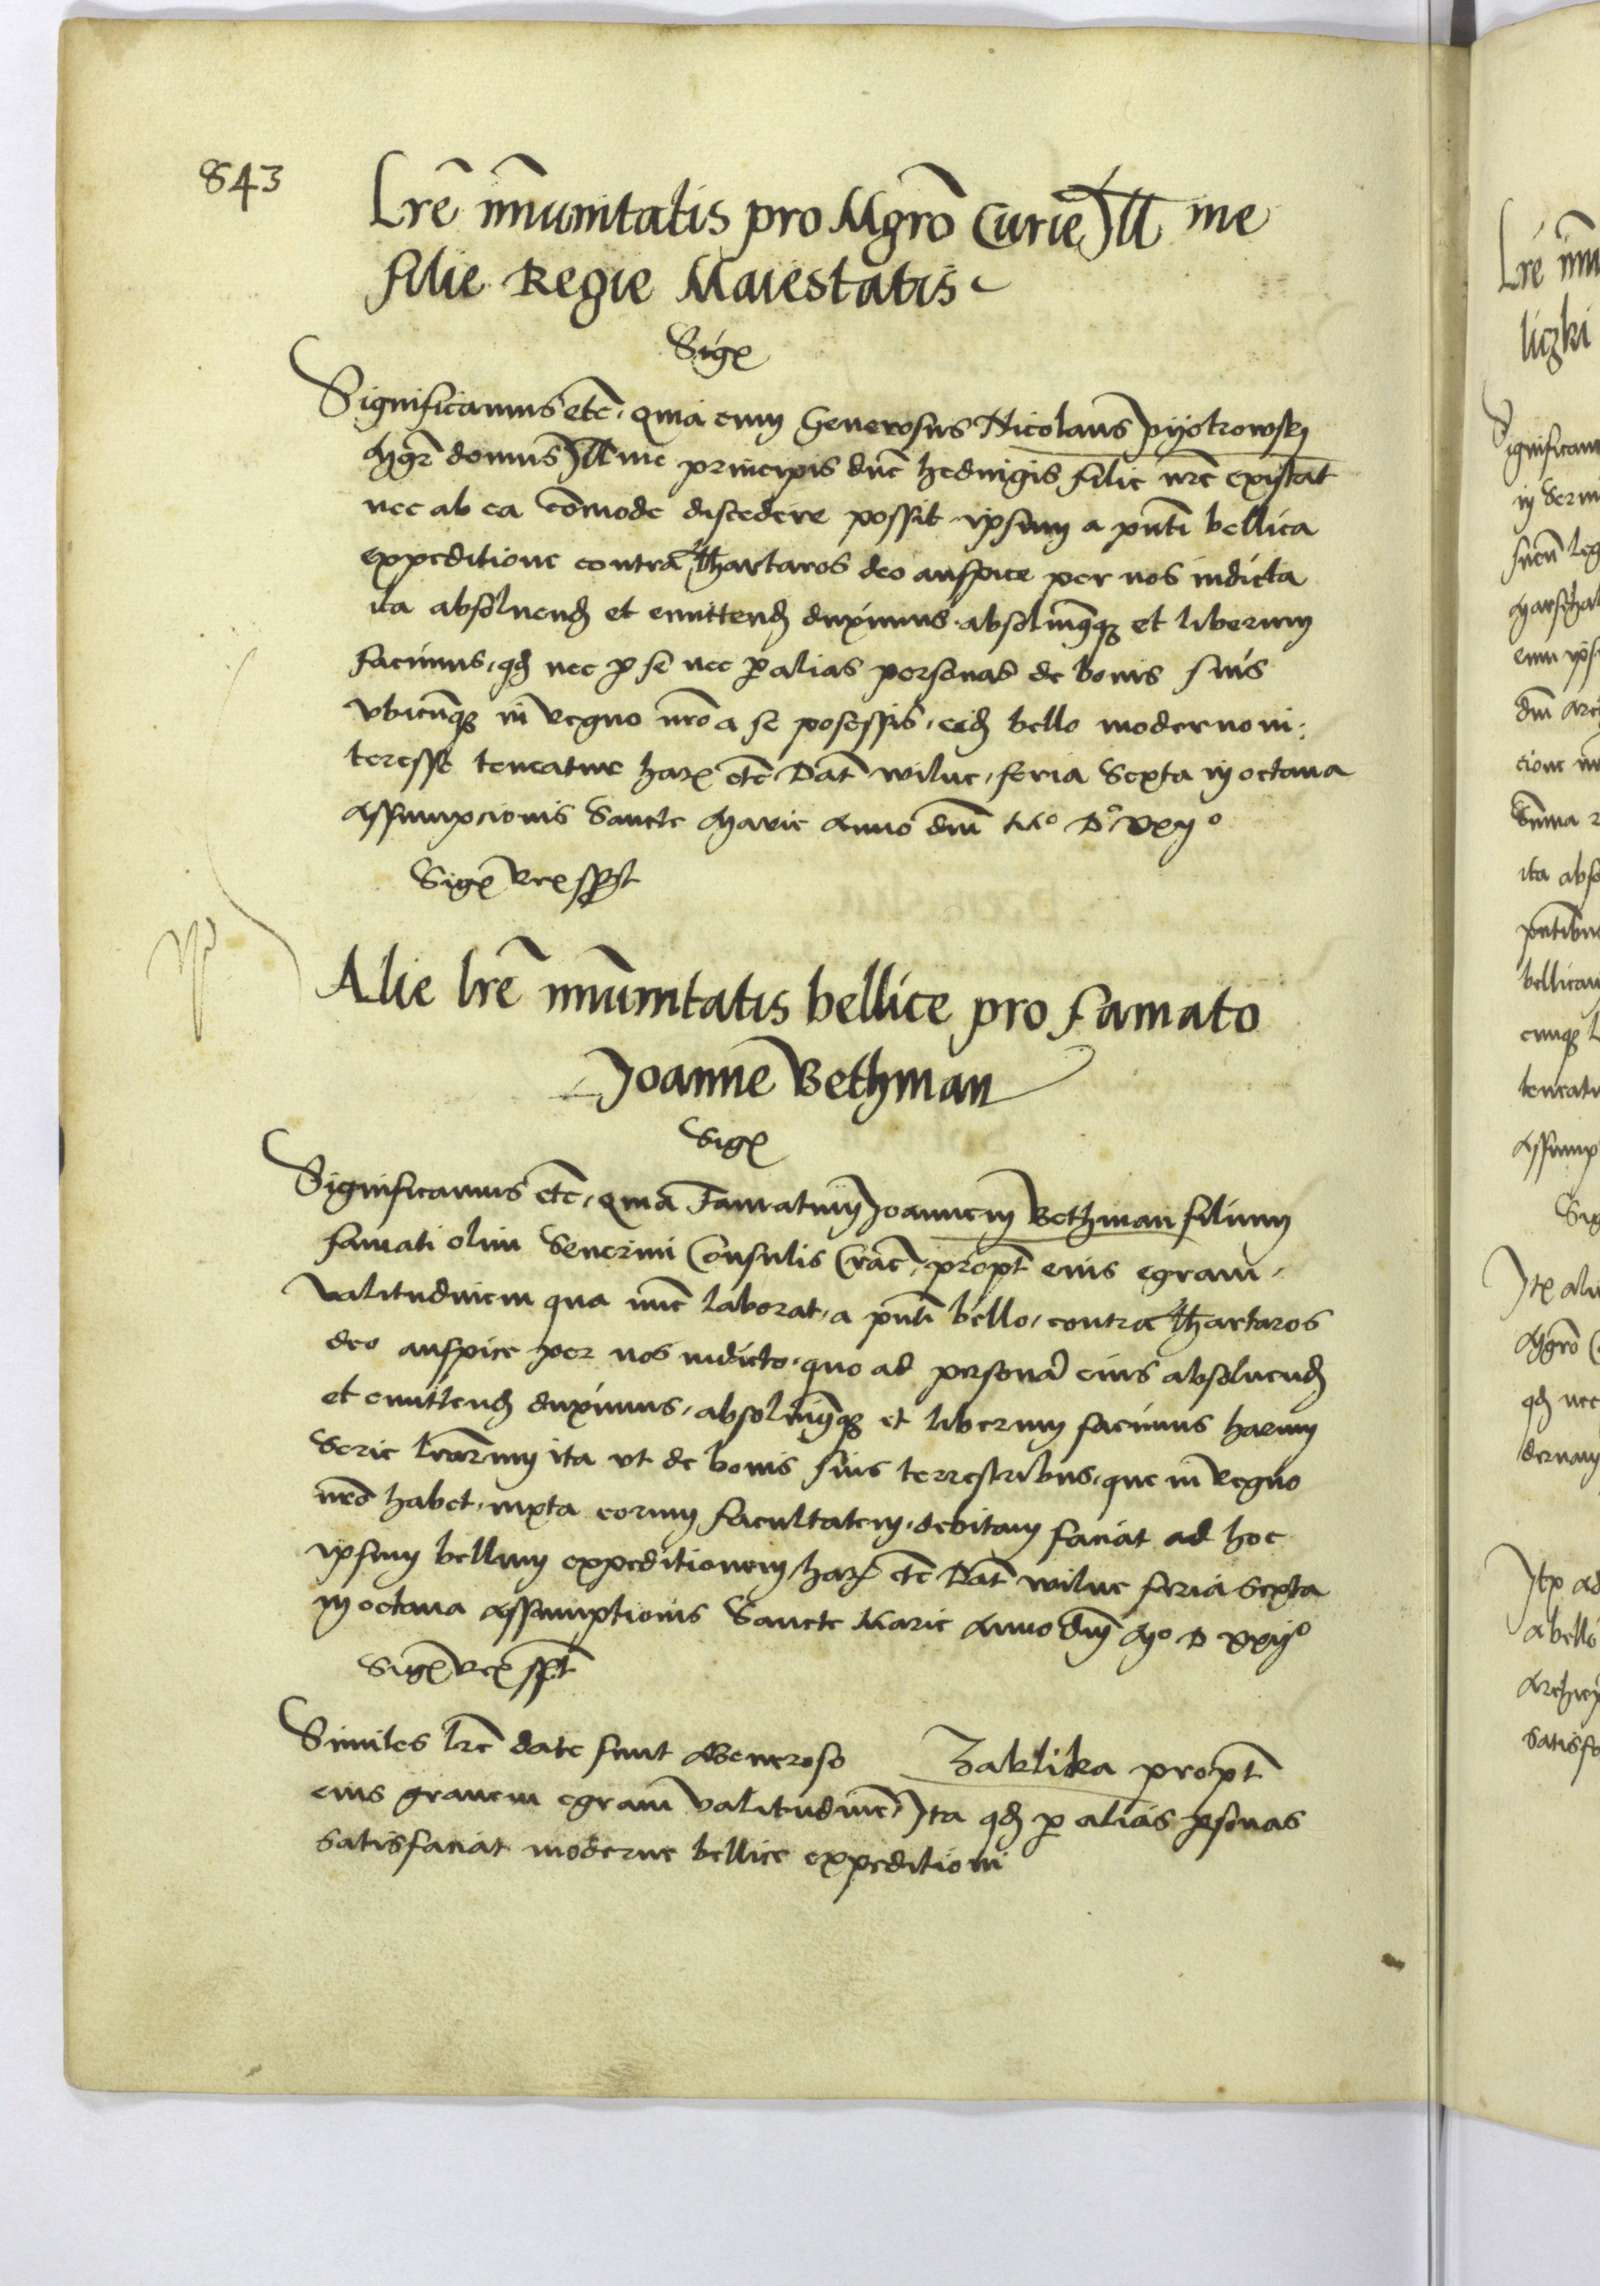 843
Lrē īmunitatis pro Mgrō Curie Ill me
filie Regie Maiestatis
Sigx
Significamus etc̄, quia cum Generosus Nicolaus Pyotrowsky
Mgr̄ domus Ill me principis dn̄e hedvigis filie nrē existat
nec ab ea cōmode discedere possit ipsum a pn̄ti bellica
expeditione contra Thartaros deo auspice per nos indicta
ita absoluend et emittend duximus, absoluimꝫ et liberum
facimus, qd nec p se nec p alias personas de bonis suis
vbicunqꝫ in Regno nrō a se posessis, eid bello moderno in:
teresse teneatur harx etc̄ Dat̄ wilne, feria Sexta in octaua
Assumpcionis Sancte Marie Anno dni Mo Do xxijo
Sigx Rex sspst
Alie lrē īmunitatis bellice pro famato
Joanne Bethman
Sigx
Significamus etc̄, quia Famatum Joannem Bethman filium
famati olim Seuerini Consulis Crac̄, propt̄ eius egram
valitudinem qua nunc laborat, a pn̄ti bello, contra Thartaros
deo auspice per nos indicto, quo ad personā eius absoluend
et emittend duximus, absoluimꝫ et liberum facimus harum
Serie lrarum ita vt de bonis suis terrestribus, que in Regno
nrō habet, iuxta eorum facultatem, debitam faciat ad hoc
ipsum bellum expeditionem, harx etc̄ Dat̄ wilne feria Sexta
in octaua Assumptionis Sancte Marie Anno dnī Mo D xxijo
Sigx Rex sspt̄
Similes lrē date sunt Generoso Zaklika propt̄
eius grauem egram valitudinē, Ita qd p alias psonas
satisfaciat moderne bellice expeditioni